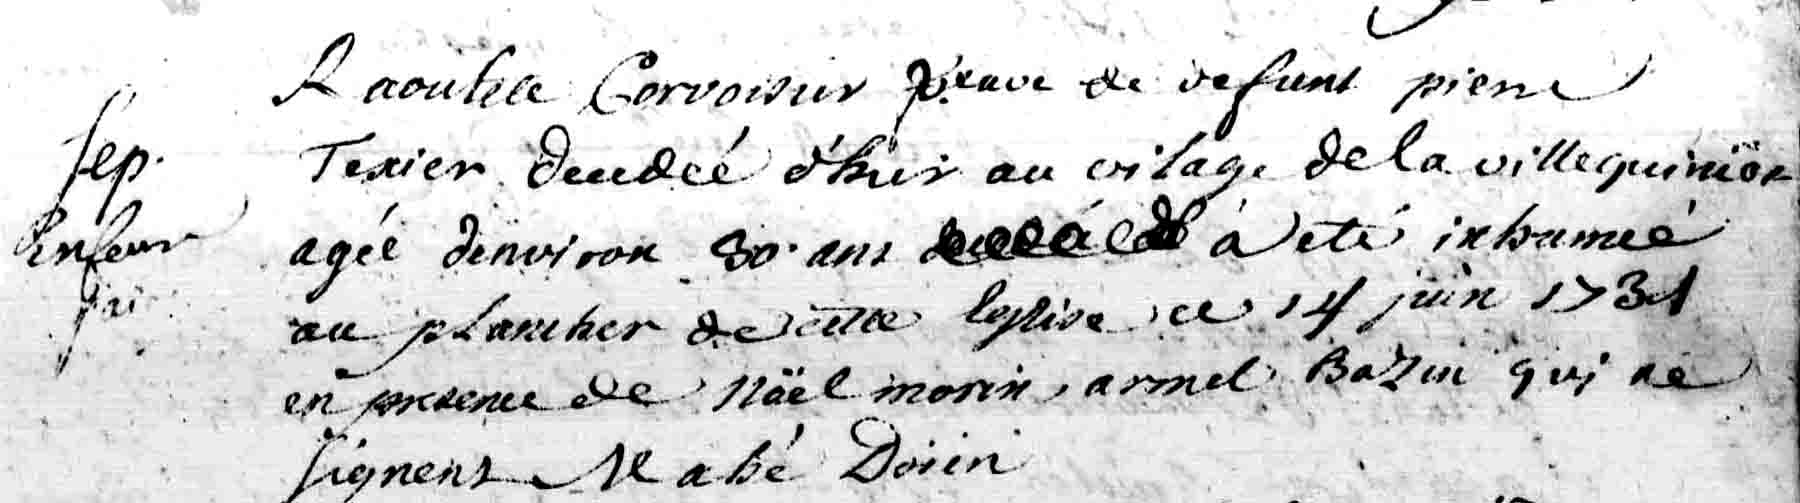 Raoulete Corvoisier veuve de defunt pierre
sep. Texier decedeé d'hier au vilage de la villequinion
agéé denviron 30 ans à eté inhumeé
au plancher de cette leglise ce 14 juin 1731
en presence de Nöel morin, armel Bazin qui ne
signent